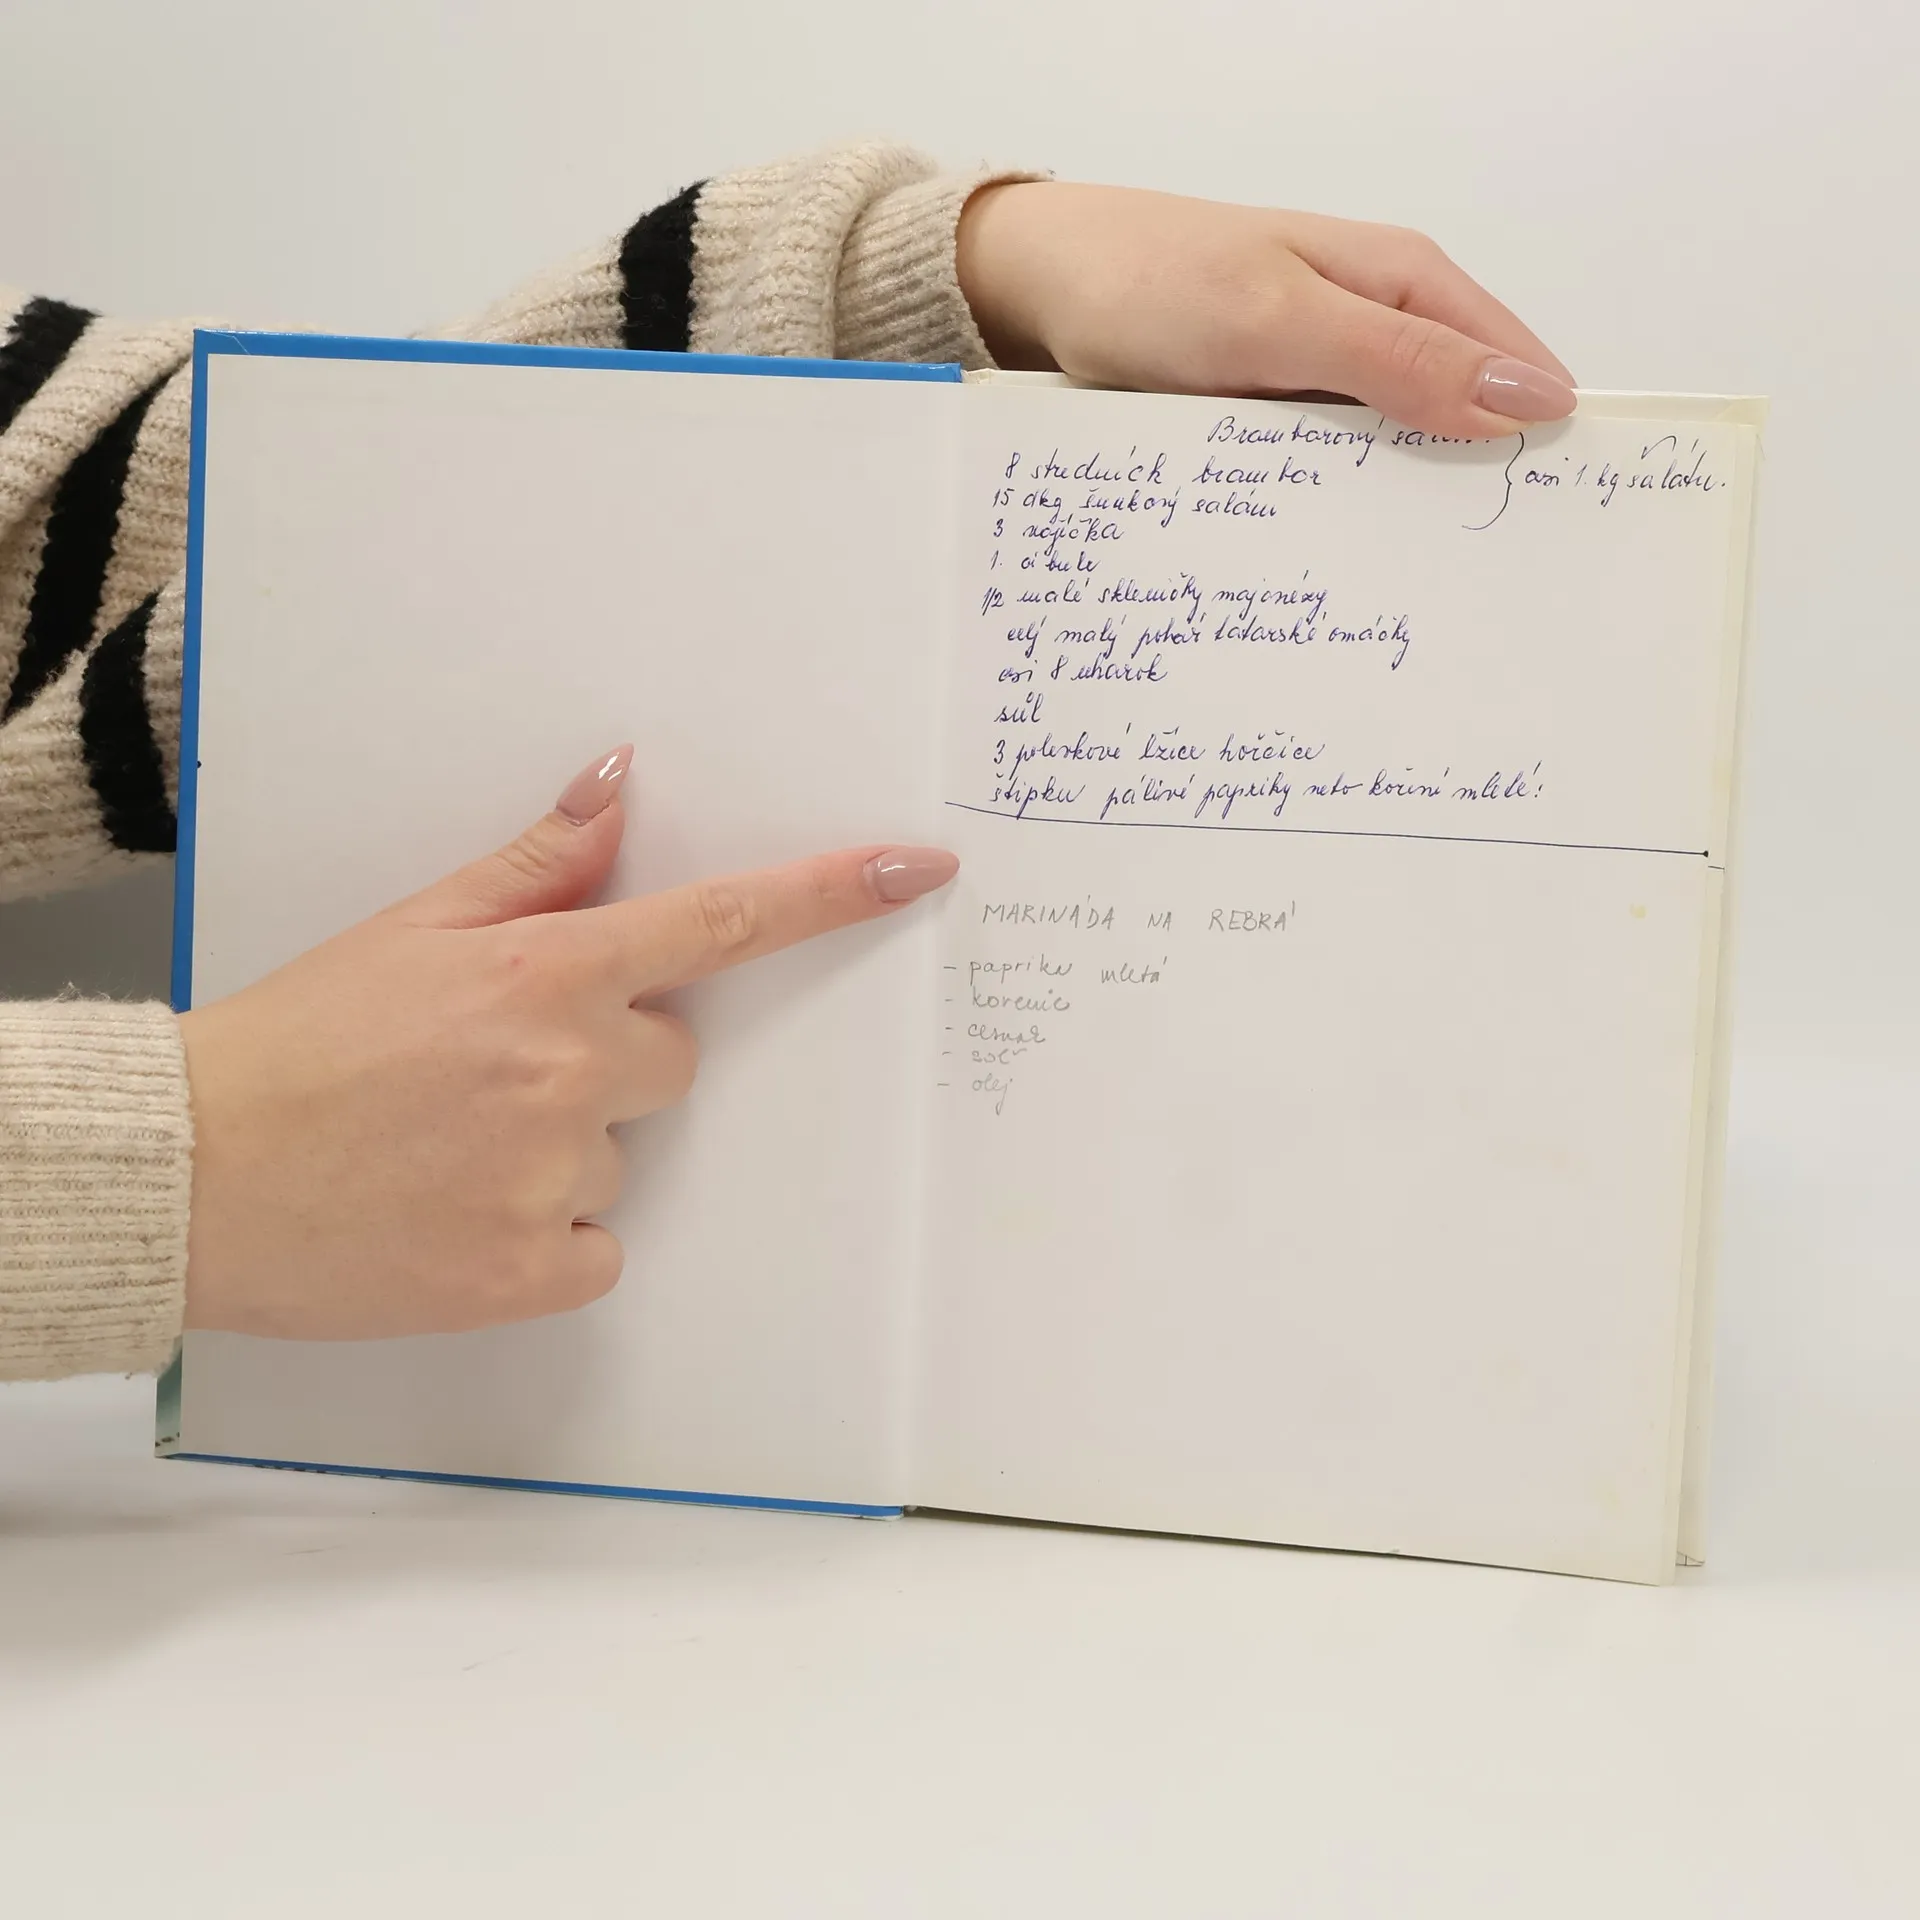 Bramborový
8 středních brambor
15 dkg šunkový salám
3 vajíčka
1. cibule
1/2 malé skleničky majonézy
celý malý pohár tatarské omáčky
asi 8 uhorok
sůl
3 polevkové lžíce hořčice
štipku pálivé papriky nebo koření mleté!
asi 1. kg šalátu.
MARINÁDA NA REBRÁ
- paprika mletá
- korenie
- cesnak
- soľ
- olej